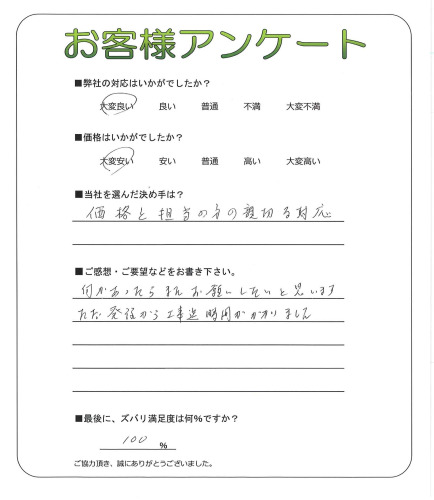 お客様アンケート
■弊社の対応はいかがでしたか?
大変良い 良い 普通 不満 大変不満
■価格はいかがでしたか?
大変安い 安い 普通 高い 大変高い
■当社を選んだ決め手は?
価格と担当の方の親切な対応
■ご感想・ご要望などをお書き下さい。
何かあったらまたお願いしたいと思います
ただ発注から工事迄時間がかかりました
■最後に、ズバリ満足度は何%ですか?
100 %
ご協力頂き、誠にありがとうございました。